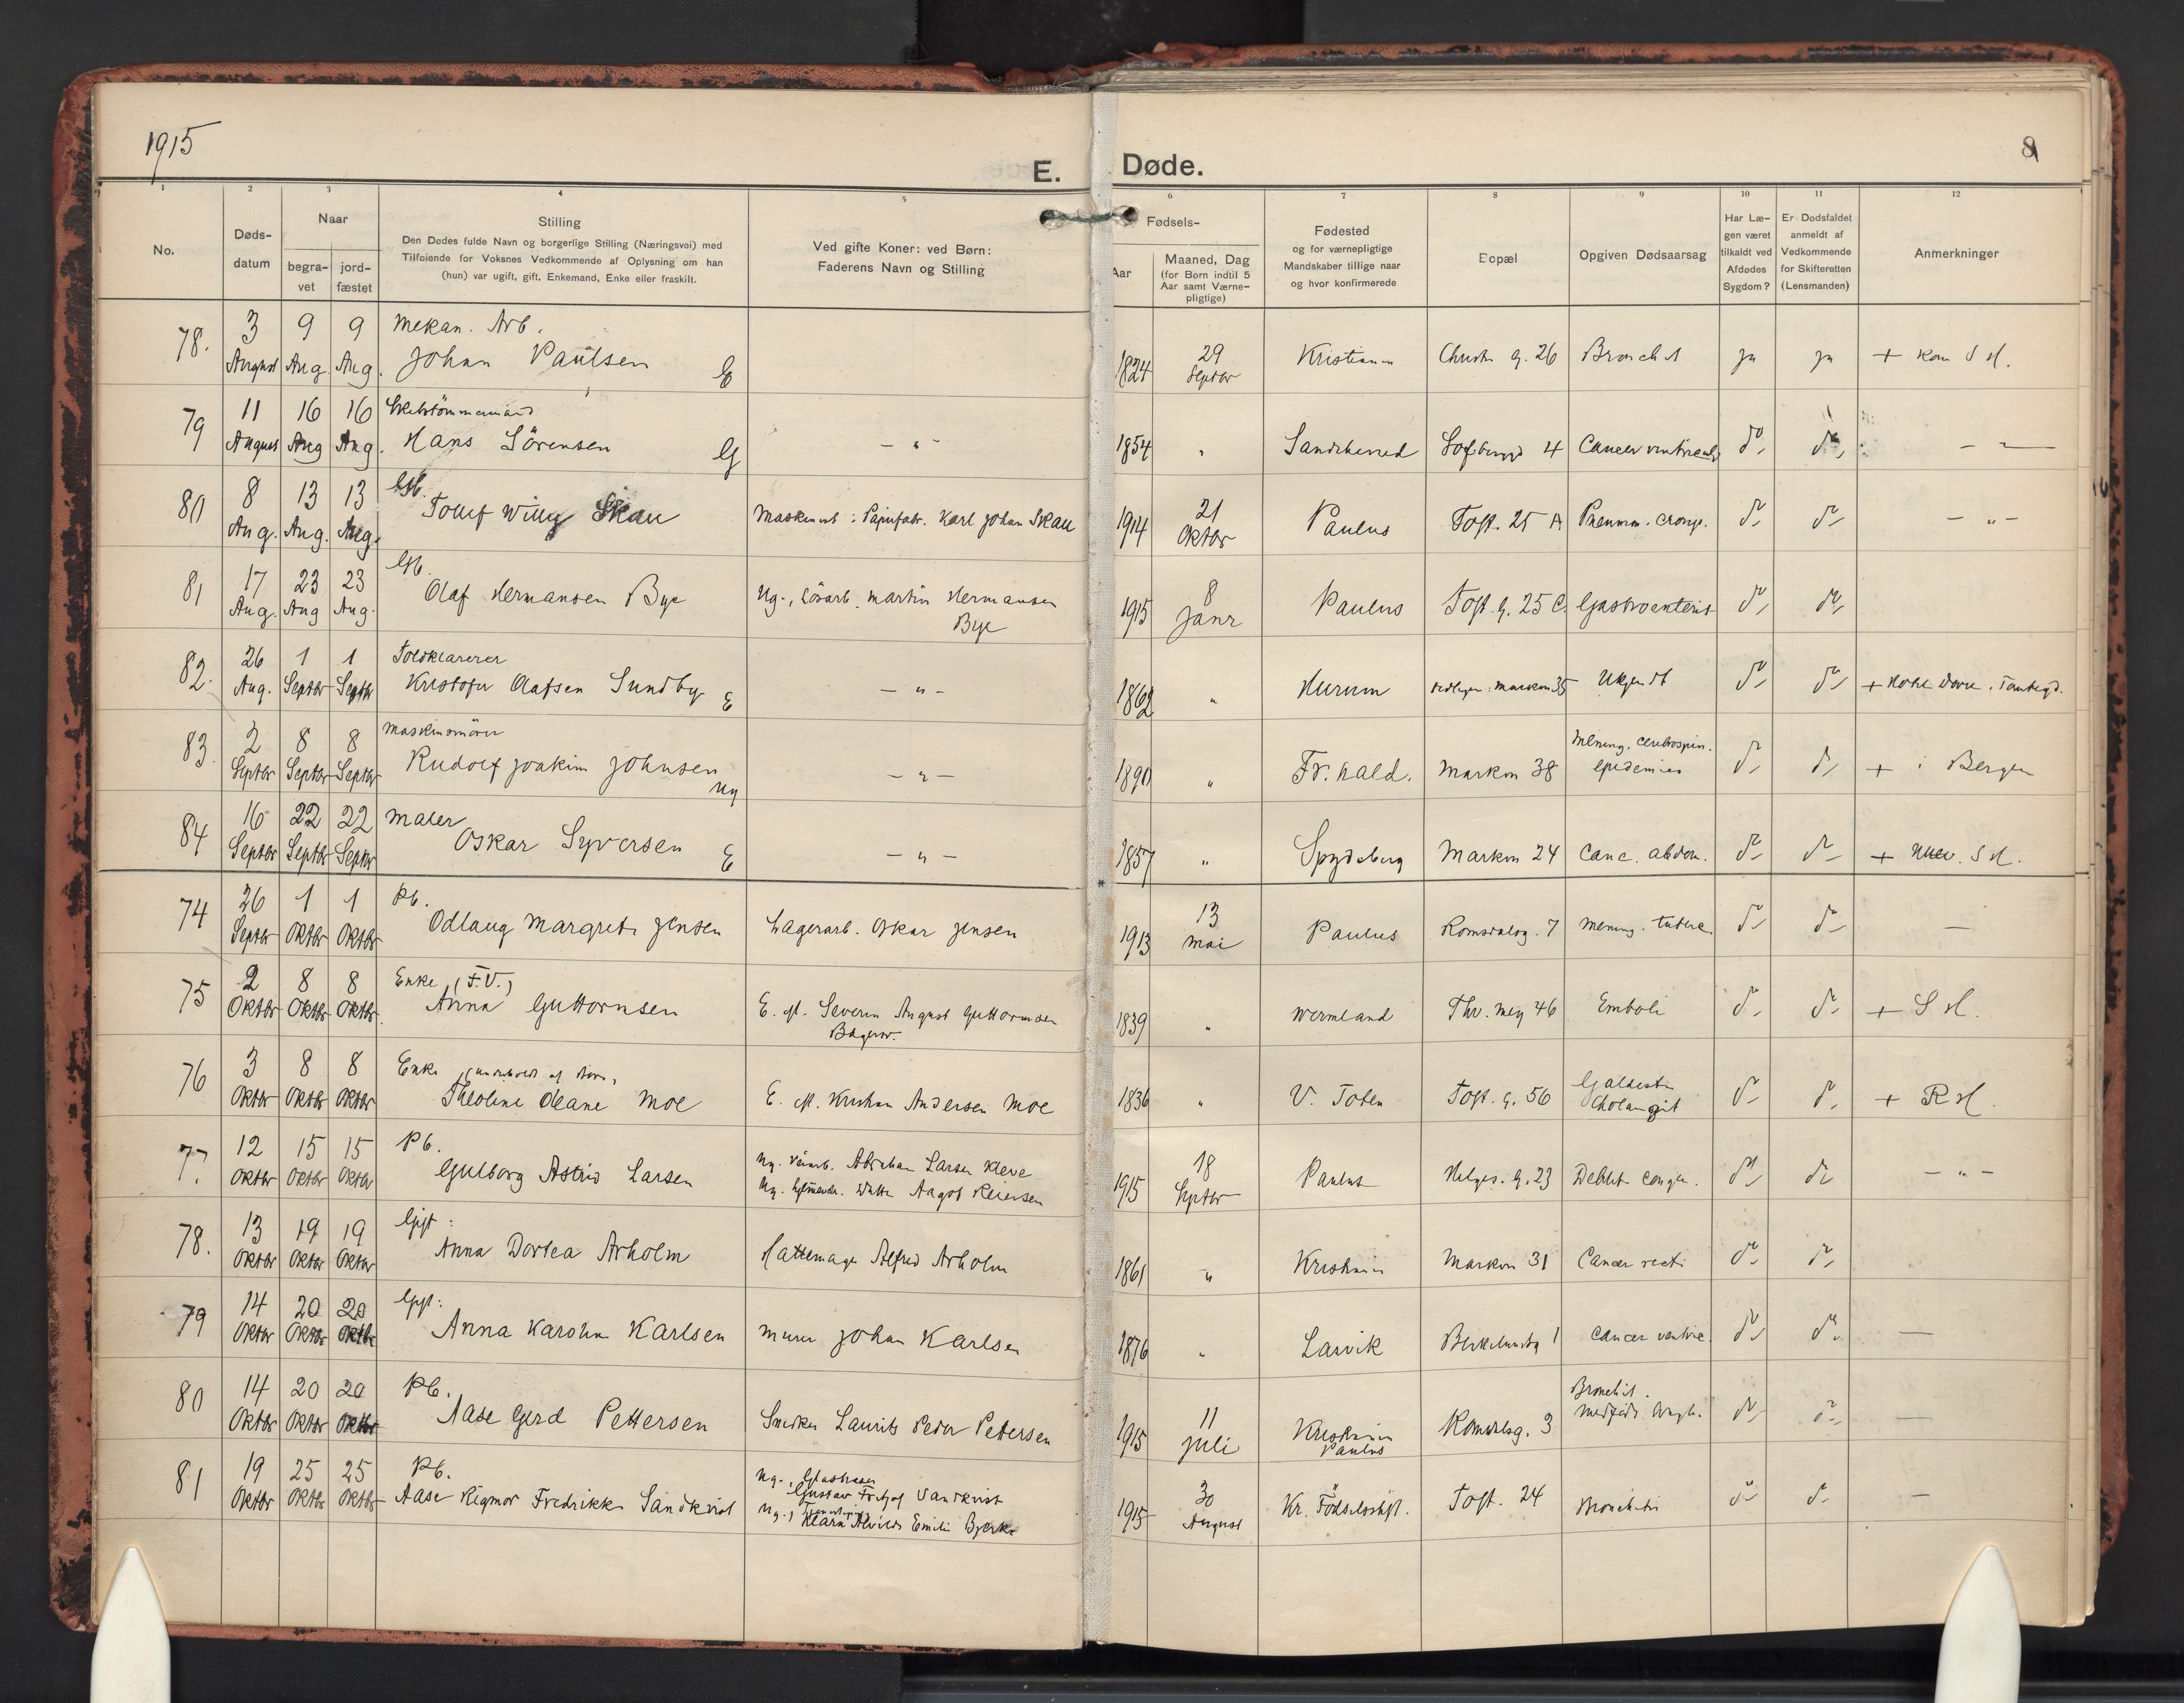 1915
E. Døde.
8
1 2 3 4 5 6 7 8 9 10 11 12
No.
Døds-
datum
Naar
begra-
vet
jord-
fæstet
Stilling
Den Dødes fulde Navn og borgerlige Stilling (Næringsvei) med
Tilføiende for Voksnes Vedkommende af Oplysning om han
(hun) var ugift, gift, Enkemand, Enke eller fraskilt.
Ved gifte Koner: ved Børn:
Faderens Navn og Stilling
Fødsels-
Aar
Maaned, Dag
(for Børn indtil 5
Aar samt Værne-
pligtige)
Fødested
og for værnepligtige
Mandskaber tillige naar
og hvor konfirmerede
Bopæl
Opgiven Dødsaarsag
Har Læ-
gen været
tilkaldt ved
Afdødes
Sygdom?
Er Dødsfaldet
anmeldt af
Vedkommende
for Skifteretten
(Lensmanden)
Anmerkninger
78. 3 9 9 Mekan. Arb.
August Aug. Aug. Johan Paulsen E 1824 29 Septbr Kristiania Christ. g. 26 Bronchit ja ja + Kom S H.
79 11 16 16
August Aug Aug. Hans Sörensen G — " — 1854 " Sandeherred 4 Cancer ventriculi do do
80 8 13 13 Gb.
Aug. Aug. Aug. Willy Skau Papirfabr. Karl Johan Skau 1914 21 Oktbr Paulus Toft. 25 A Pneumon. croup. do do — " —
81 17 23 23 Gb.
Aug. Aug Aug. Olaf Hermansen Bye Ug., Martin Hermansen
Bye 1915 8 Janr Paulus Toft. g. 25 C. Gastroenterit do do
82. 26 1 1 Toldklarerer
Aug. Septbr Septbr Kristofer Olafsen Sundby E — " — 1862 " Hurum Markvn 35 Ukjendt do do + Hotel
83. 2 8 8
Septbr Septbr Septbr Rudolf Joakim Johnsen Ug — " — 1890 " Fr.hald. Markvn 38 Mening. cerebrospin.
epidemica do do + i Bergen
84 16 22 22 Maler
Septbr Septbr Septbr Oskar Syversen E — " — 1857 " Spydeberg Markvn 24 Canc. abdom. do do + S H.
74 26 1 1 Pb.
Septbr Oktbr Oktbr Odlaug Margrete Jensen Lagerarb. Oskar Jensen 1913 13 Mai Paulus Romsdalsg. 7 Mening. tuberc. do do —
75 2 8 8 Enke (F.V.)
Oktbr Oktbr Oktbr Anna Guttormsen E. ef. Severin August Guttormsen
1839 " Wermland Thv. Mey 46 Emboli do do + S H.
76 3 8 8 Enke
Oktbr Oktbr Oktbr Theoline Oleane Moe E. ef. Kristian Andersen Moe 1836 " V. Toten Toft. g. 56 Galdesten
Cholangit do do + R H.
77. 12 15 15 Pb.
Oktbr Oktbr Oktbr Gulborg Astrid Larsen Ug. Abraham Larsen Kleve
Ug. Aagot Reiersen 1915 18 Septbr Paulus Helges. g. 23 Debilit. congen. do do — " —
78. 13 19 19 Gift:
Oktbr Oktbr Oktbr Anna Dortea Arholm Hattemager Alfred Arholm 1861 " Kristiania Markvn 31 Cancer recti do do
79 14 20 20 Gift:
Oktbr Oktbr Oktbr Anna Karoline Karlsen Murer Johan Karlsen 1876 " Larvik 1 Cancer ventric. do do —
80 14 20 20 Pb.
Oktbr Oktbr Oktbr Aase Gerd Pettersen Snedker Laurits Peder Pettersen 1915 11 Juli Kristiania
Paulus Romsdalsg. 3 Bronchit.
do do —
81 19 25 25 Pb.
Oktbr Oktbr Oktbr Aase Rigmor Fredrikke Sandkvist Ug.,
Gustav Fritjof Sandkvist
Ug.,
Klara Alvilde Emilie Bjerke 1915 30 August Kr. Födselsstift. Toft. 24 Bronchitis do do —